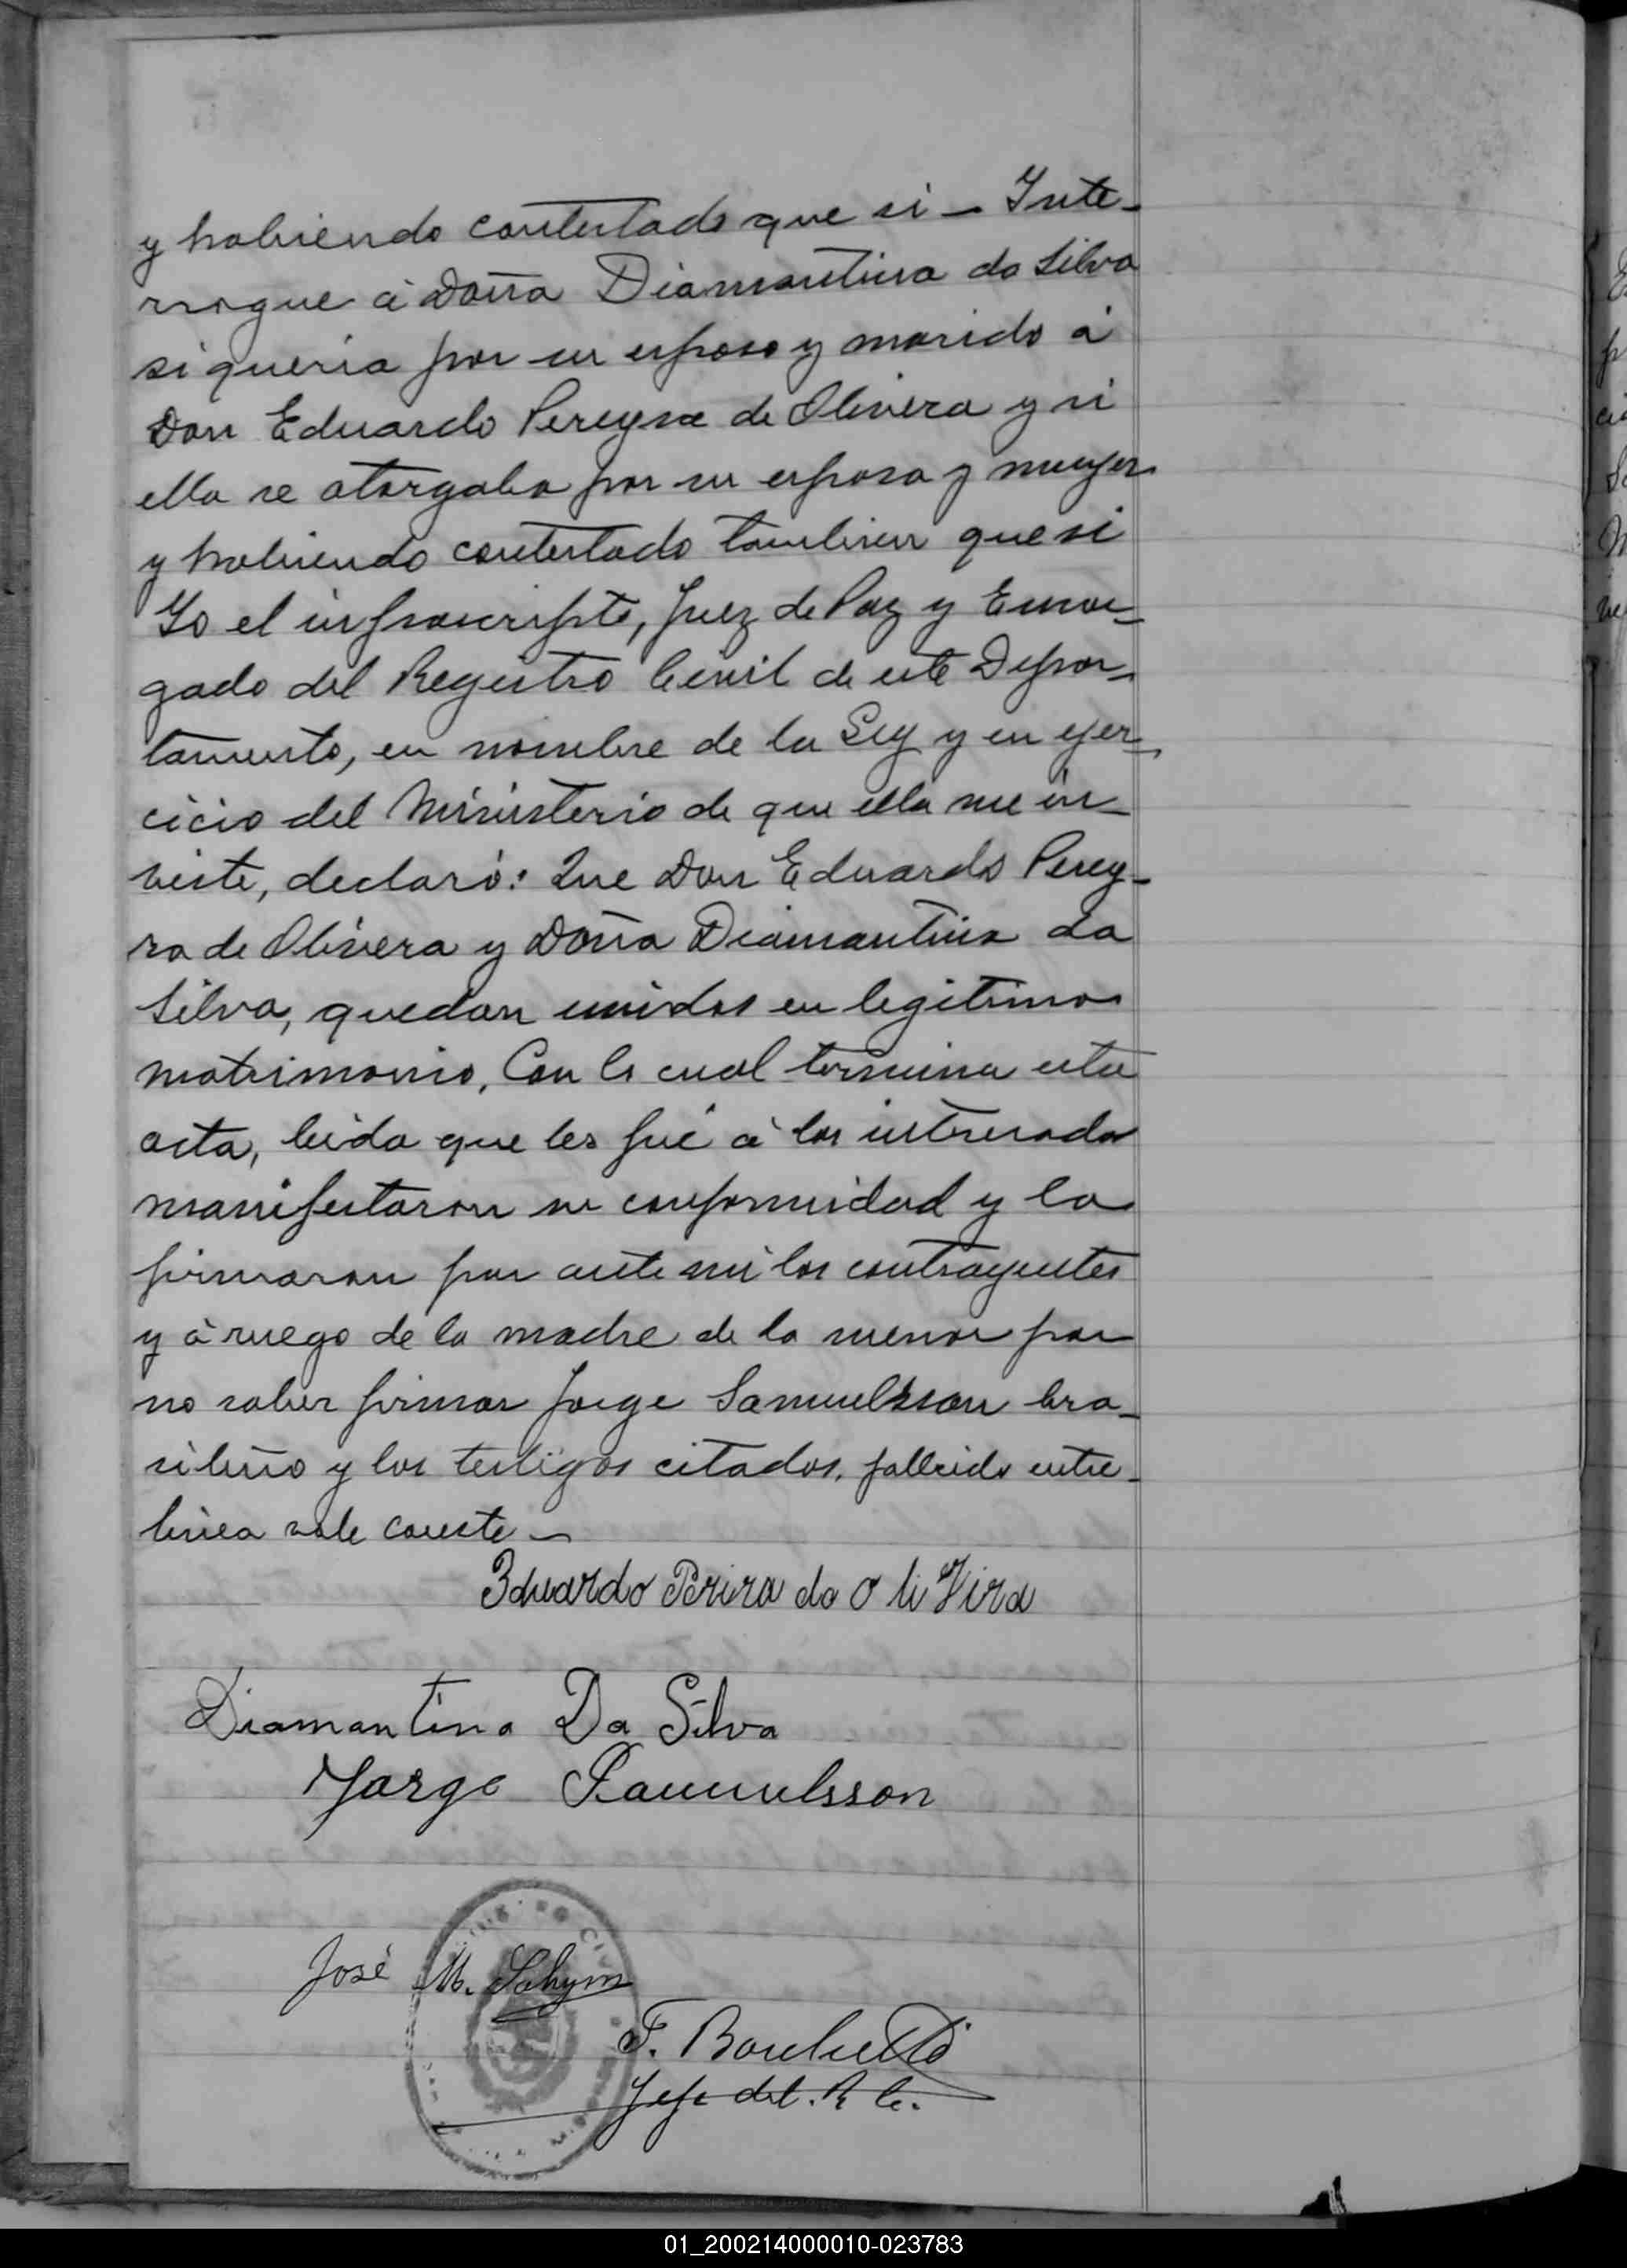 y habiendo contestado que si — Inte-
rrogue á Doña Diamantina da Silva
si queria por su esposo y marido á
Don Eduardo Pereyra de Olivera y si
ella se otorgaba por su esposa y mujer
y habiendo contestado tambien que si
Yo el infrascripto, Juez de Paz y Encar-
gado del Registro Civil de este Depar-
tamento, en nombre de la Ley y en ejer-
cicio del Ministerio de que ella me in-
viste, declaró: Que Don Eduardo Perey-
ra de Olivera y Doña Diamantina da
Silva, quedan unidos en legitimo
matrimonio. Con lo cual termina esta
acta, leida que les fué á los interesados
manifestaron su conformidad y la
firmaron por ante mi los contrayentes
y á ruego de la madre de la menor por
no saber firmar Jorge Samuelsson bra-
sileño y los testigos citados. fallecido entre-
linea vale conste —
Eduardo Perira da O li Vira
Diamantina Da Silva
Jorge Samuelsson
José M.
F.
Jefe del. R C.
01_200214000010-023783